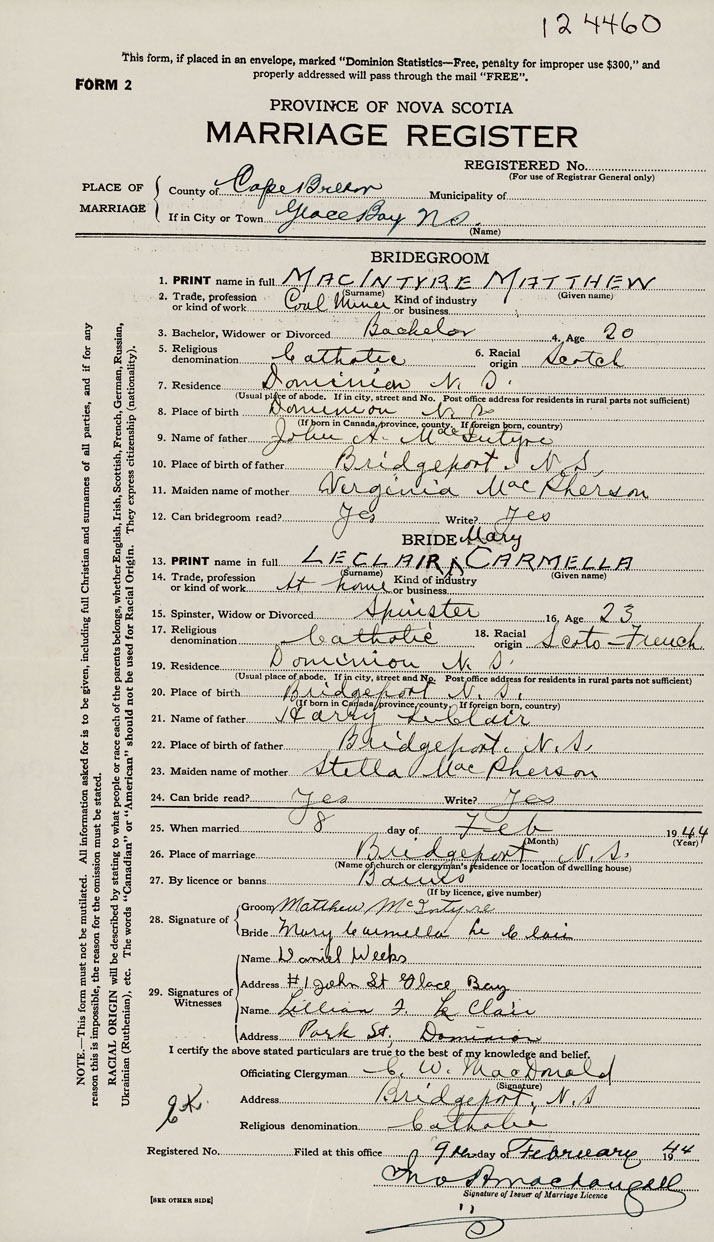 124460
This form, if placed in an envelope, marked "Dominion Statistics—Free, penalty for improper use $300," and
properly addressed will pass through the mail "FREE".
FORM 2
PROVINCE OF NOVA SCOTIA
MARRIAGE REGISTER
REGISTERED No.
(For use of Registrar General only)
PLACE OF MARRIAGE
County of Cape Breton Municipality of
If in City or Town Glace Bay N.S.
(Name)
BRIDEGROOM
1. PRINT name in full MACINTYRE MATTHEW
(Surname) (Given name)
2. Trade, profession or kind of work Coal Miner Kind of industry or business
3. Bachelor, Widower or Divorced Bachelor 4. Age 20
5. Religious denomination Catholic 6. Racial origin Scotch
7. Residence Dominion N.S.
(Usual place of abode. If in city, street and No. Post office address for residents in rural parts not sufficient)
8. Place of birth Dominion N.S.
(If born in Canada, province, county. If foreign born, country)
9. Name of father John A. MacIntyre
10. Place of birth of father Bridgeport, N.S,
11. Maiden name of mother Virginia MacPherson
12. Can bridegroom read? Yes Write? Yes
BRIDE Mary
13. PRINT name in full LECLAIR CARMELLA
(Surname) (Given name)
14. Trade, profession or kind of work At home Kind of industry or business
15. Spinster, Widow or Divorced Spinster 16. Age 23
17. Religious denomination Catholic 18. Racial origin Scoto-French
19. Residence Dominion N.S.
(Usual place of abode. If in city, street and No. Post office address for residents in rural parts not sufficient)
20. Place of birth Bridgeport N.S.
(If born in Canada, province, county. If foreign born, country)
21. Name of father Harry LeClair
22. Place of birth of father Bridgeport, N.S.
23. Maiden name of mother Stella MacPherson
24. Can bride read? Yes Write? Yes
25. When married 8 day of Feb 1944
(Month) (Year)
26. Place of marriage Bridgeport N.S.
(Name of church or clergyman's residence or location of dwelling house)
27. By licence or banns Banns
(If by licence, give number)
28. Signature of
Groom Matthew McIntyre
Bride Mary Carmella Le Clair
29. Signatures of Witnesses
Name Daniel Weeks
Address #1 John St Glace Bay
Name Lillian F. Le Clair
Address Park St, Dominion
I certify the above stated particulars are true to the best of my knowledge and belief.
Officiating Clergyman C. W. MacDonald
(Signature)
Address Bridgeport, N.S
Religious denomination Catholic
Registered No. Filed at this office 9th day of February 1944
Jno A Macdougall
Signature of Issuer of Marriage Licence
[SEE OTHER SIDE]
NOTE.—This form must not be mutilated. All information asked for is to be given, including full Christian and surnames of all parties, and if for any
reason this is impossible, the reason for the omission must be stated.
RACIAL ORIGIN will be described by stating to what people or race each of the parents belongs, whether English, Irish, Scottish, French, German, Russian,
Ukrainian (Ruthenian), etc. The words "Canadian" or "American" should not be used for Racial Origin. They express citizenship (nationality).